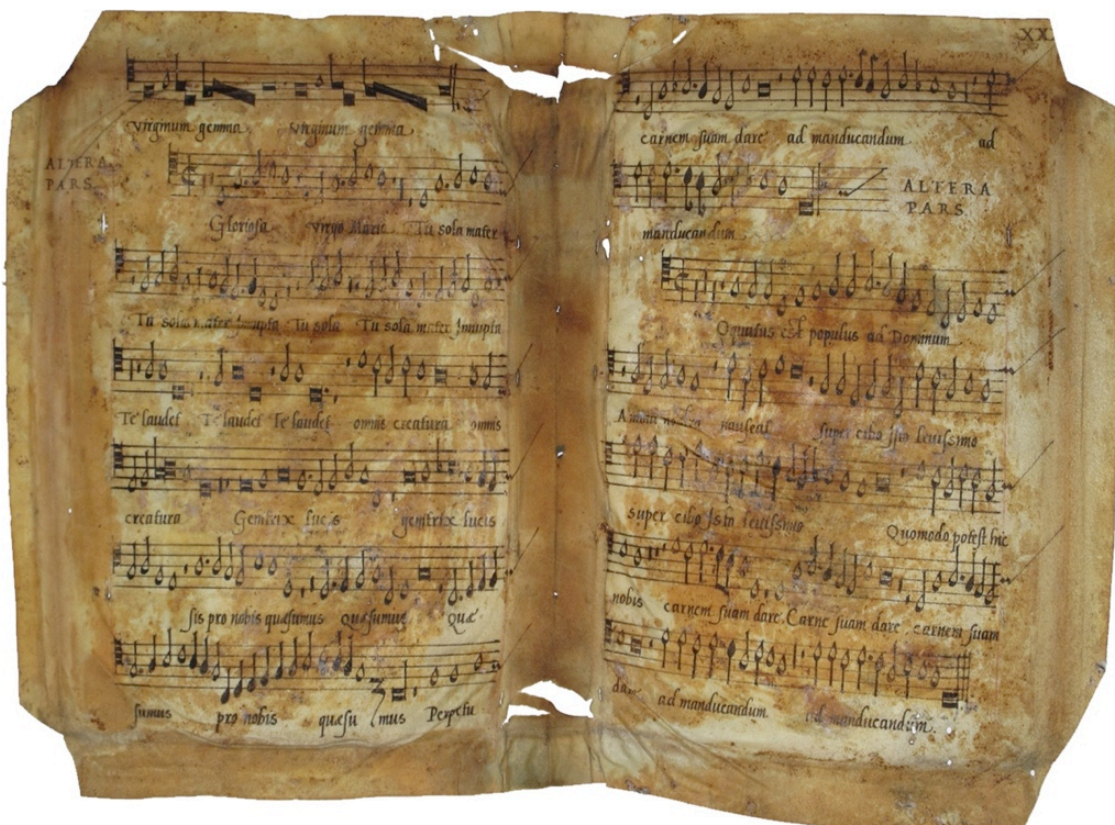 virginum gemma virginum gemma
ALTERA
PARS
Gloriosa virgo Maria Tu sola mater
Tu sola mater Innupta Tu sola Tu sola mater Innupta
Te laudet Te laudet Te laudet omnis creatura omnis
creatura Genitrix lucis genitrix lucis
sis pro nobis quæsumus quæsumus Quæ
sumus pro nobis quæsu mus Perpetu
XX
carnem suam dare ad manducandum ad
manducandum
ALTERA
PARS
Oquutus est populus ad Dominum
Anima nostra nauseat super cibo Isto leuissimo
super cibo Isto leuissimo Quomodo potest hic
nobis carnem suam dare. Carne suam dare. carnem suam
dare ad manducandum. ad manducandum.